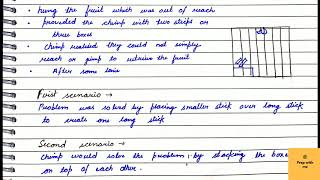 hung the fruit which was out of reach
provided the chimp with two sticks or
three boxes
Chimp realised they could not simply
reach or jump to retrieve the fruit
After some time
First scenario →
Problem was solved by placing smaller stick over long stick
to create one long stick
Second scenario →
Chimp would solve the problem by stacking the boxes
on top of each other.
Prep with
me